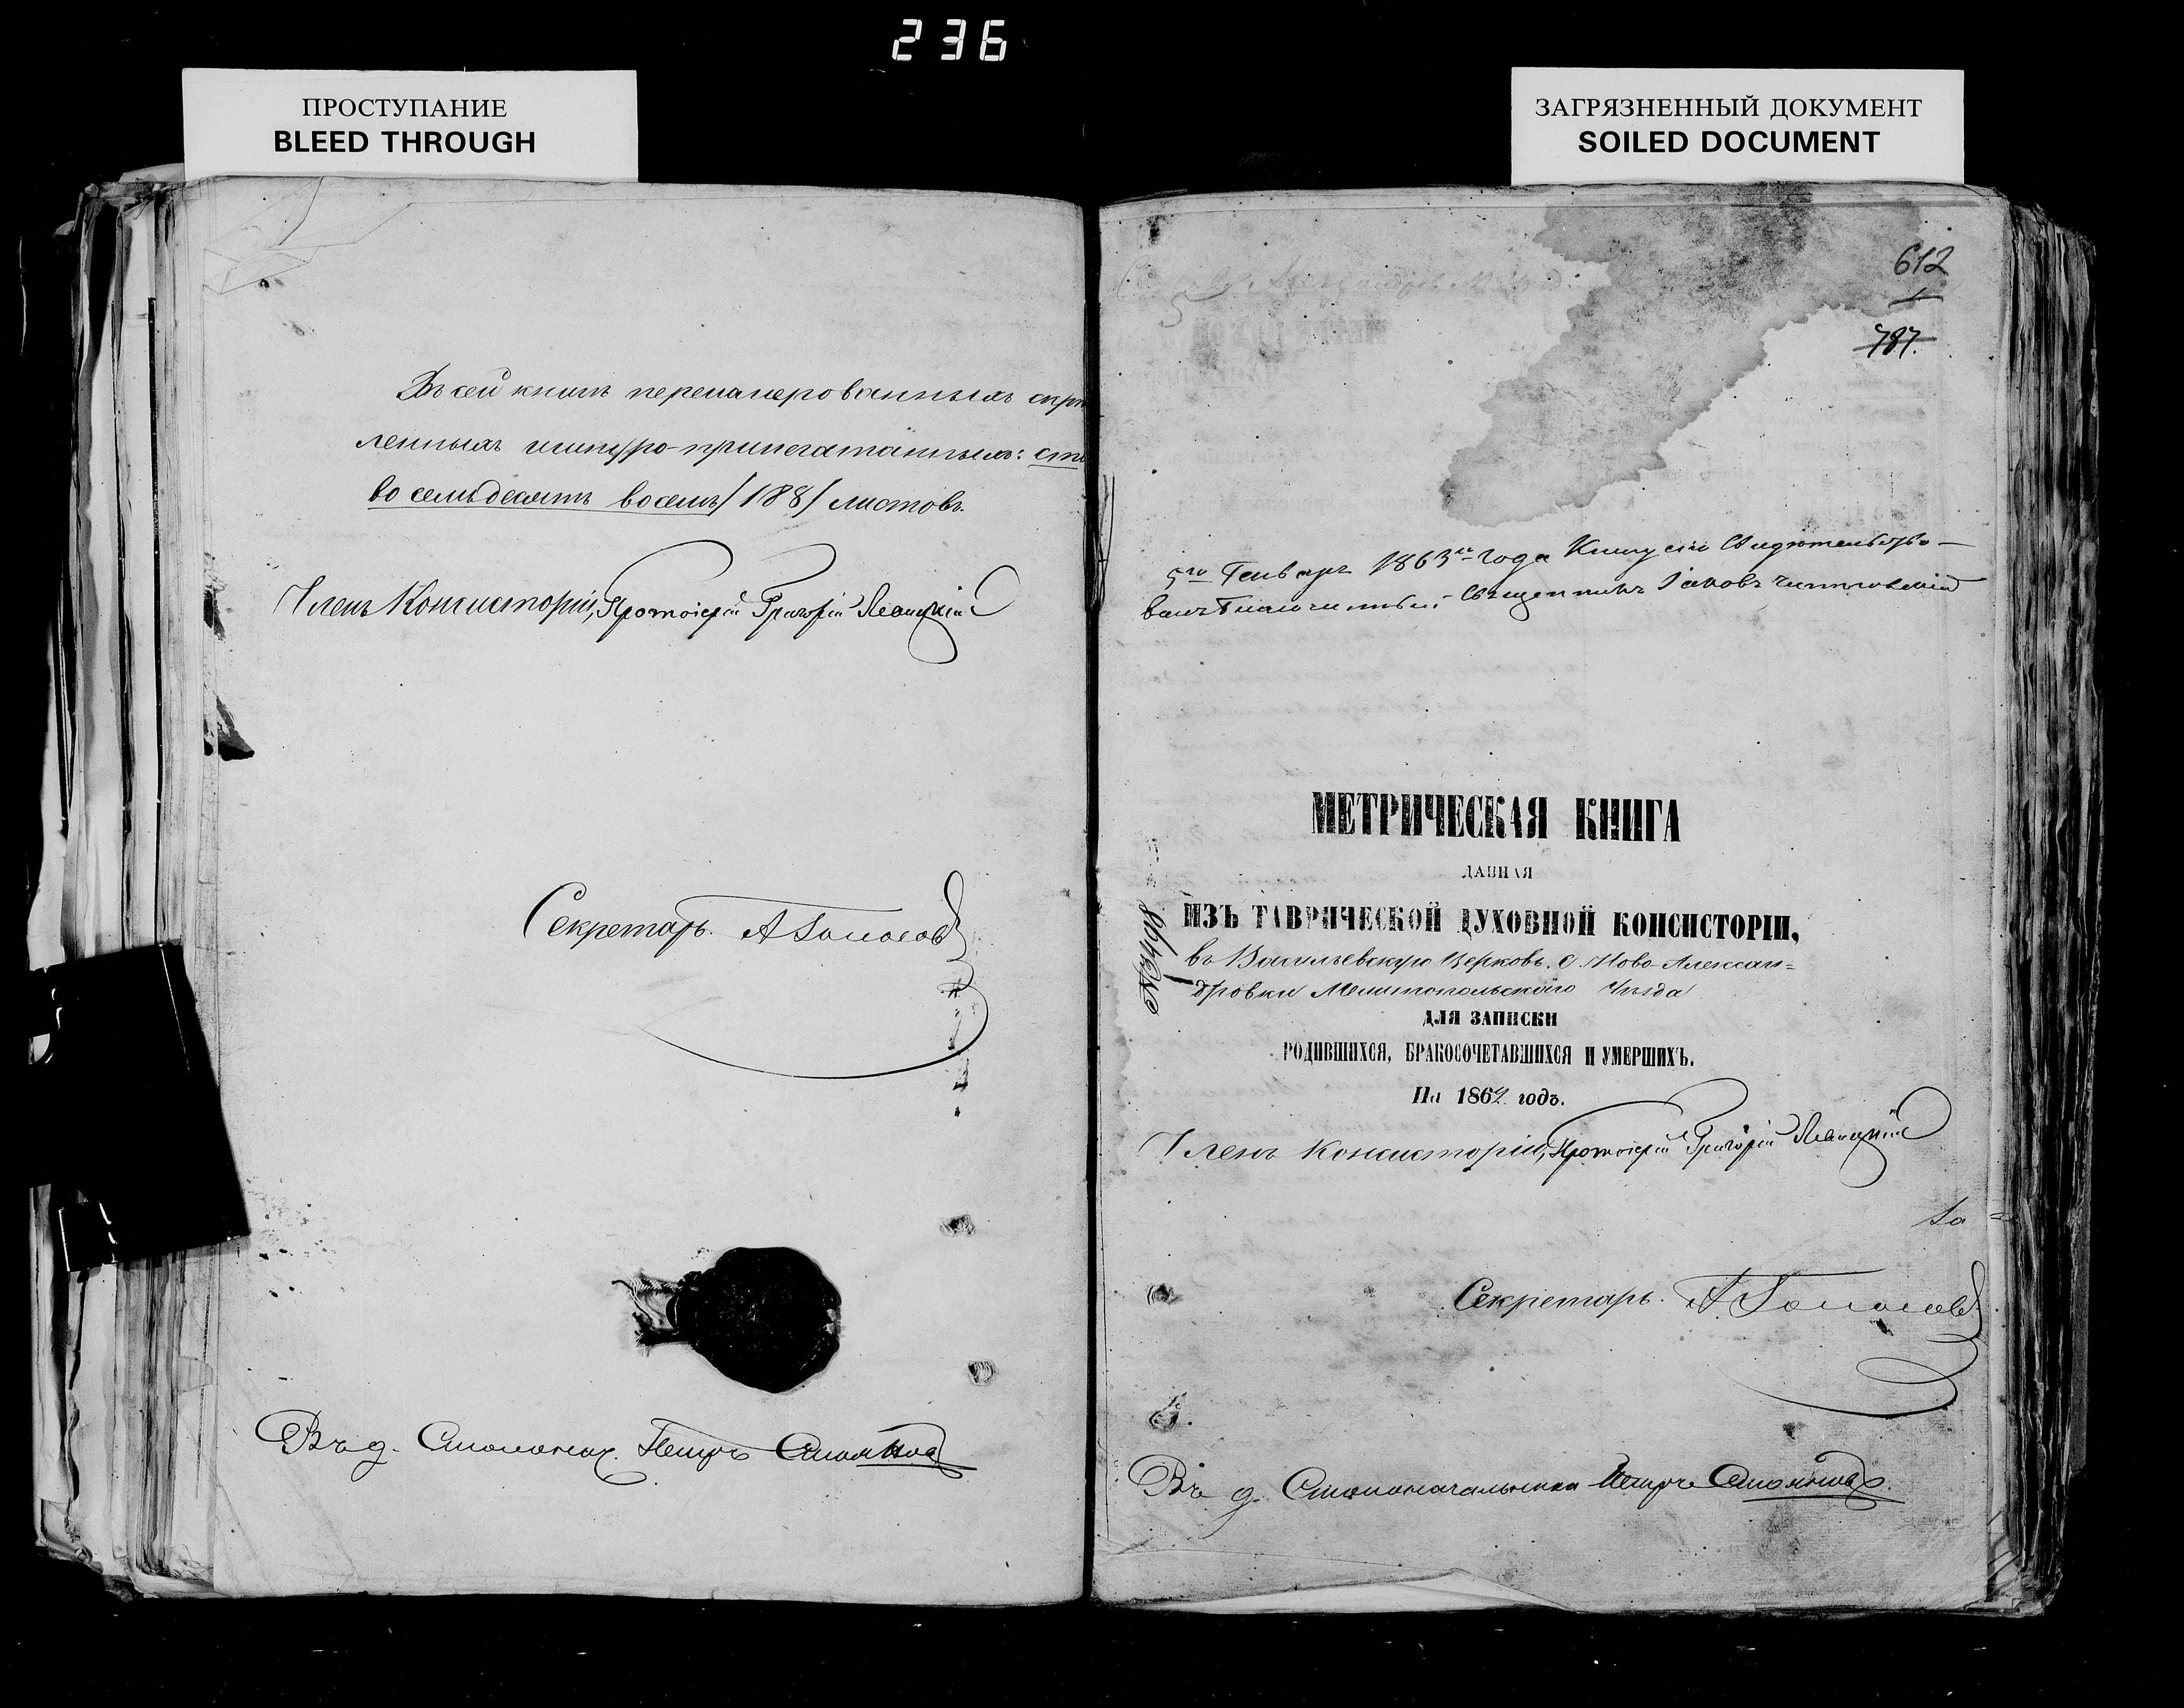 236
ПРОСТУПАНИЕ
BLEED THROUGH
ЗАГРЯЗНЕННЫЙ ДОКУМЕНТ
SOILED DOCUMENT
Въ сей книгѣ перенумерованныхъ скрѣп
ленныхъ шнуро-припечатанныхъ: сто
восемьдесятъ восемь /188/ листовъ.
Членъ Консисторіи, Протоіерей Григорій
Секретарь.
Въ д. Столонач. Петръ
612
787.
5го Генваря 1863го года Книгу сію Свидѣтельство-
валъ Благочинный Священникъ Іаковъ
МЕТРИЧЕСКАЯ КНИГА
ДАННАЯ
ИЗЪ ТАВРИЧЕСКОЙ ДУХОВНОЙ КОНСИСТОРІИ,
въ Васильевскую Церковь. с. Ново-Алексан=
дровки Мелитопольскаго Уѣзда
ДЛЯ ЗАПИСКИ
РОДИВШИХСЯ, БРАКОСОЧЕТАВШИХСЯ И УМЕРШИХЪ.
На 1862 годъ.
Членъ Консисторіи, Протоіерей Григорій
За=
Секретарь.
Въ д. Столоначальника Петръ